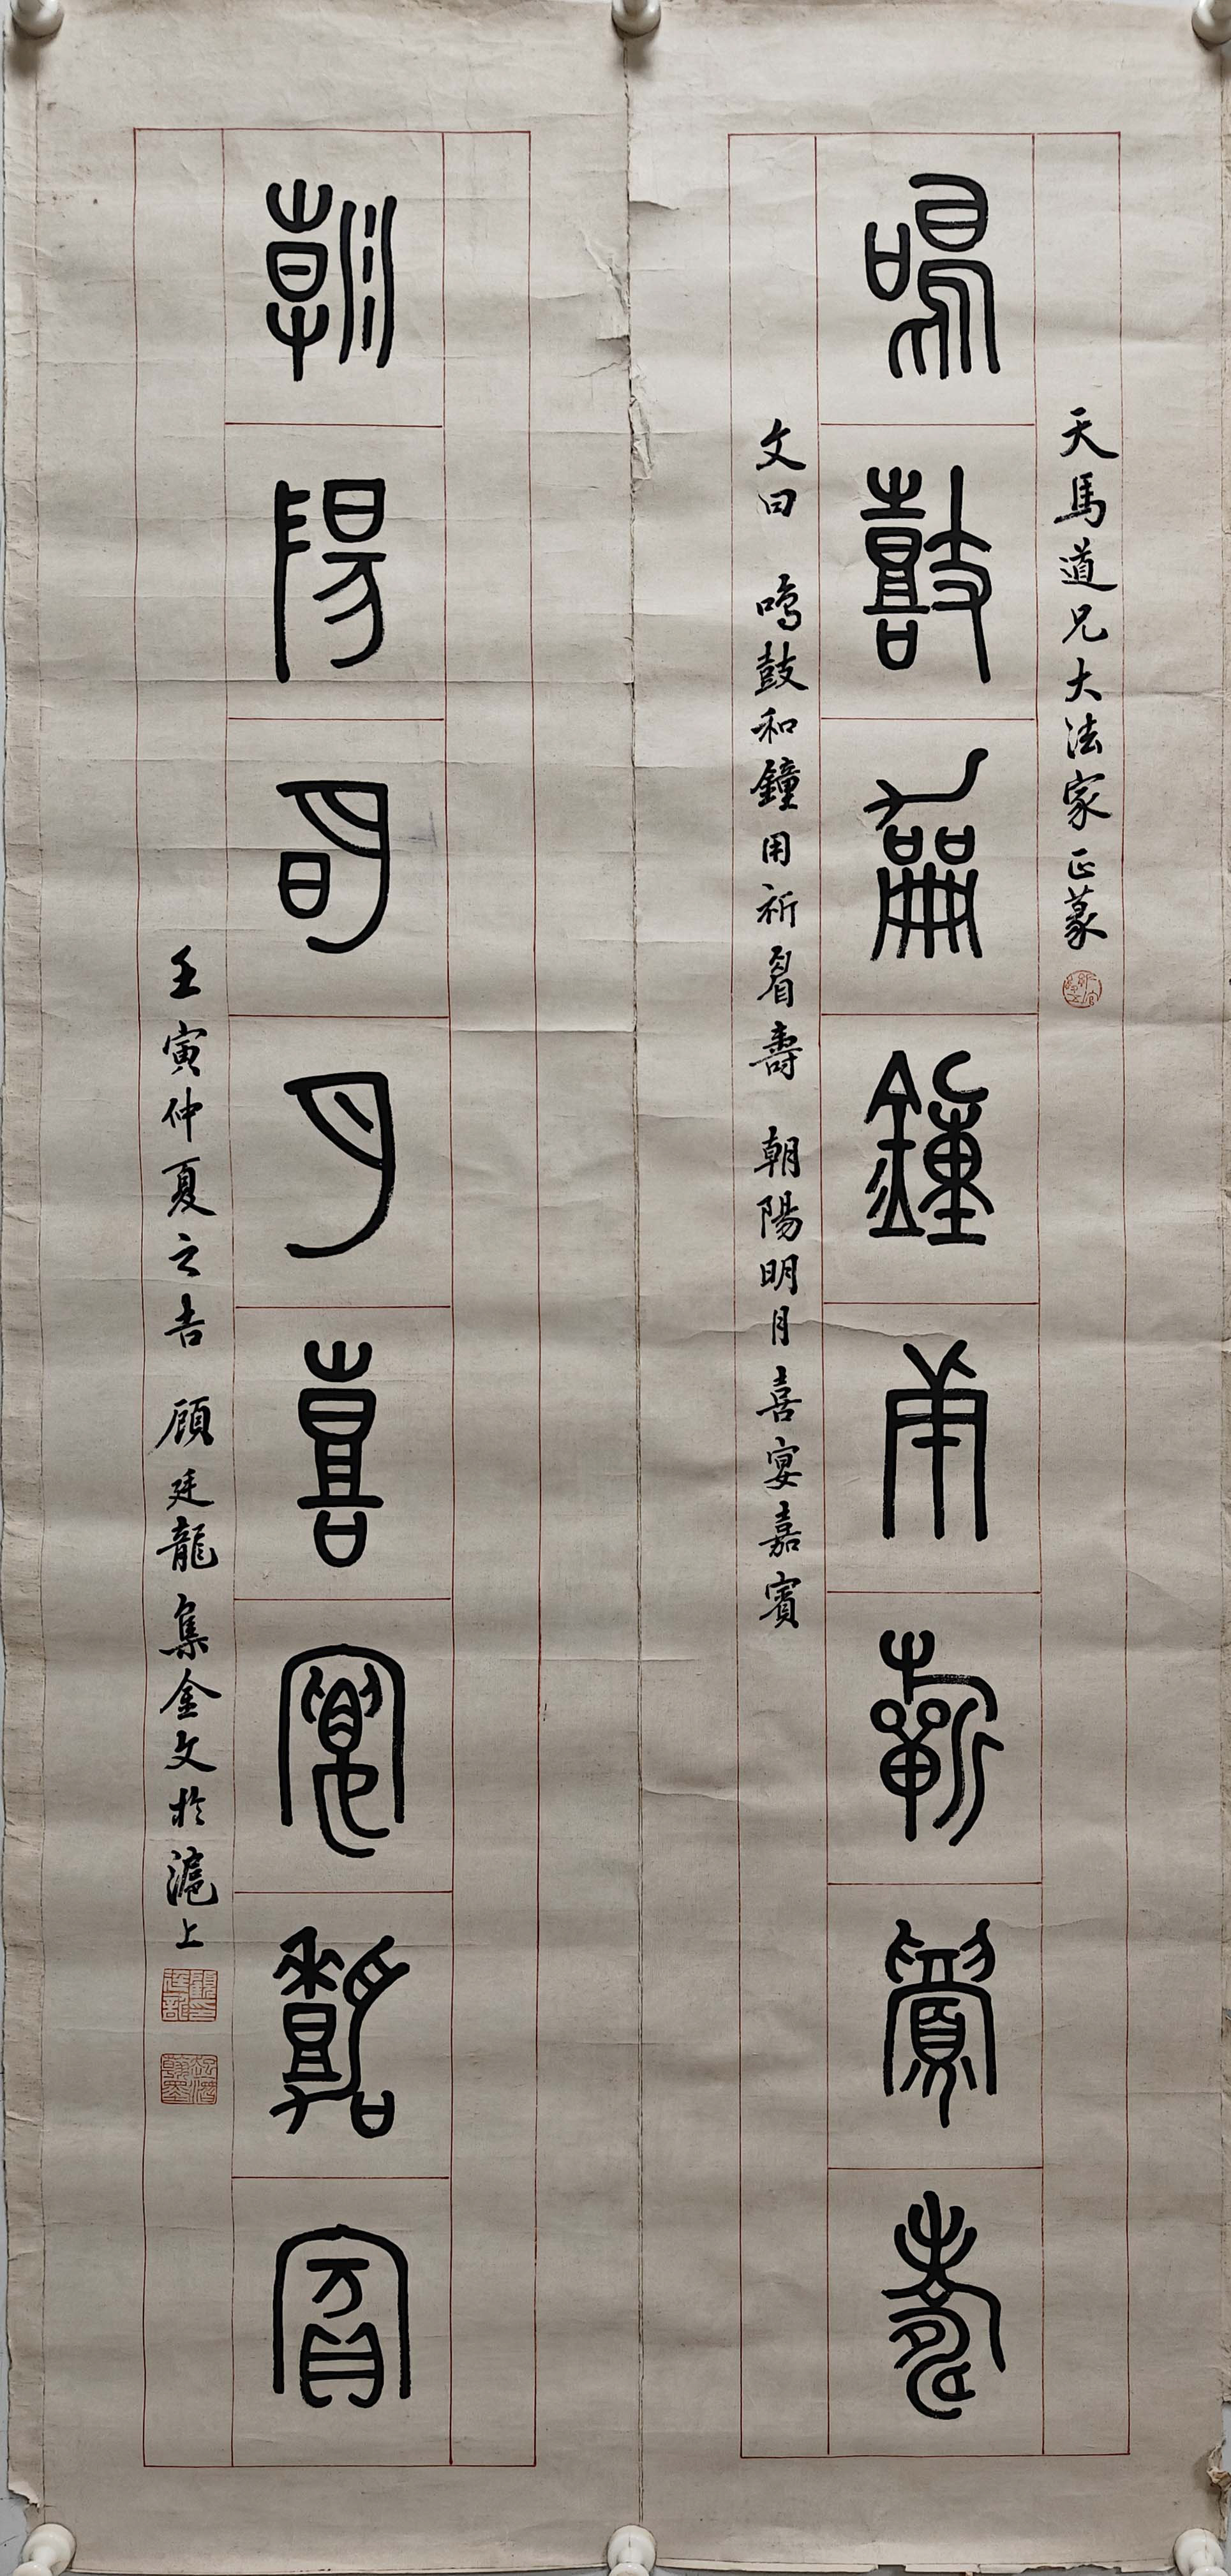 天馬道兄大法家正篆
鳴鼓龢鐘用祈眉壽
文曰 鳴鼓和鐘用祈眉壽 朝陽明月喜宴嘉賓
朝陽明月喜宴嘉賓
壬寅仲夏之吉 顧廷龍集金文於滬上